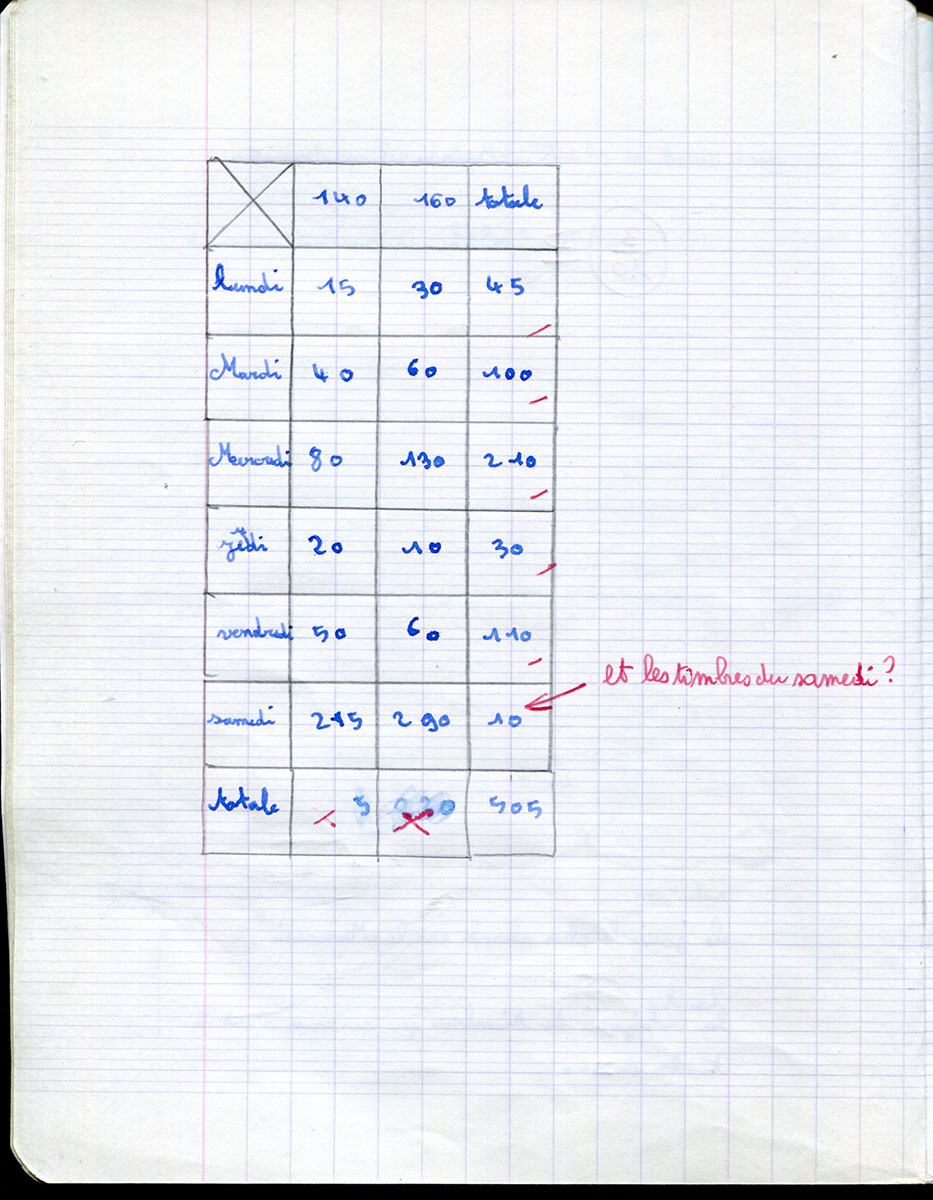 140 160 totale
lundi 15 30 45
Mardi 40 60 100
Mercredi 80 130 210
20 10 30
vendredi 50 60 110
et les timbres du samedi?
samedi 215 290 10
totale 5 505